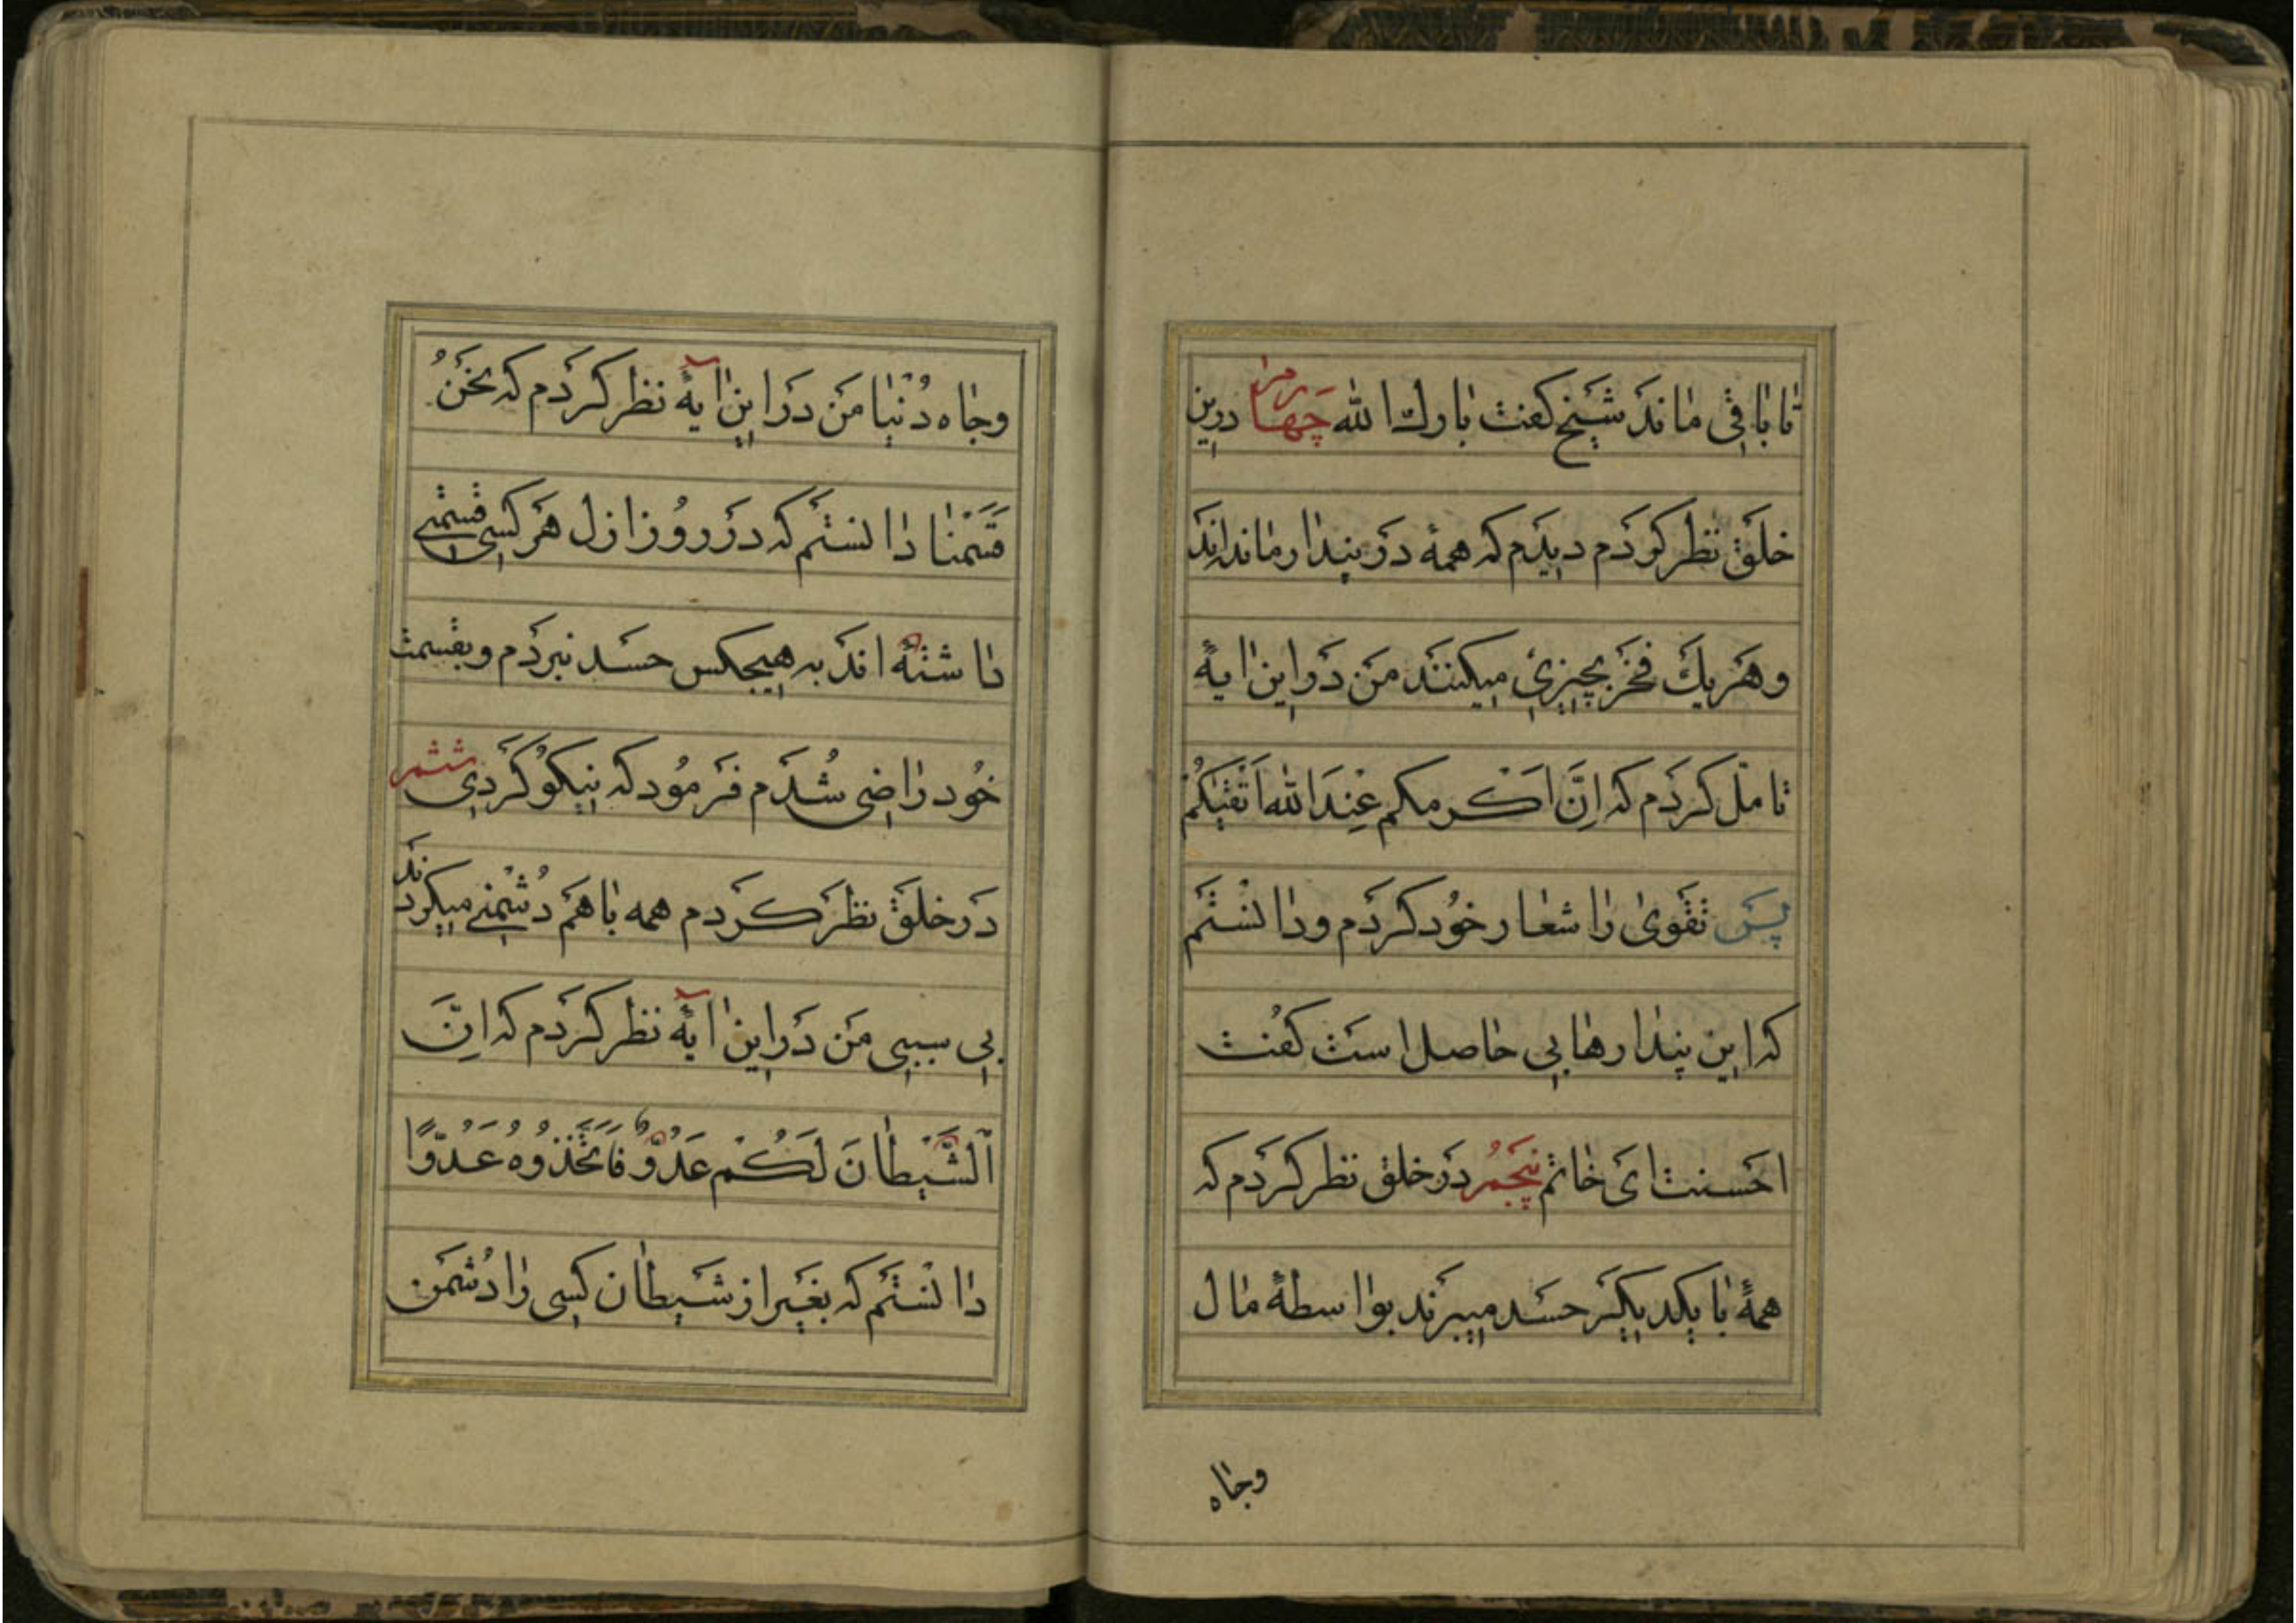 تا باقی ماند شیخ کفت بارك الله چهارم درین
خلق نظر کردم دیدم که همه در پندار مانده‌اند
وهر یك فخر بچیزی میکنند من در این ایهٔ
تامل کردم که اِنَّ اَکرمکم عِندَ الله اَتقیٰکُم
پس تقوی را شعار خود کردم ودانستم
که این پندارها بی حاصل است کفت
احسنت ای خاتم پنجم در خلق نظر کردم که
همهٔ با یکدیکر حسد میبرند بواسطهٔ مال
وجاه
وجاه دُنیا من در این ایهٔ نظر کردم که نَحنُ
قَسَمْنا دانستم که در روز ازل هر کسی قسمتی
داشتهٔ اند به هیچکس حسد نبردم وبقسمت
خود راضی شدم فرمود که نیکو کردی ششم
در خلق نظر کردم همه با هم دشمنی میکردند
بی سببی من در این ایهٔ نظر کردم که اِنَّ
الشَّیطانَ لَکُم عَدُوٌّ فَاتَّخِذُوهُ عَدُوًّا
دانستم که بغیر از شیطان کسی را دشمن